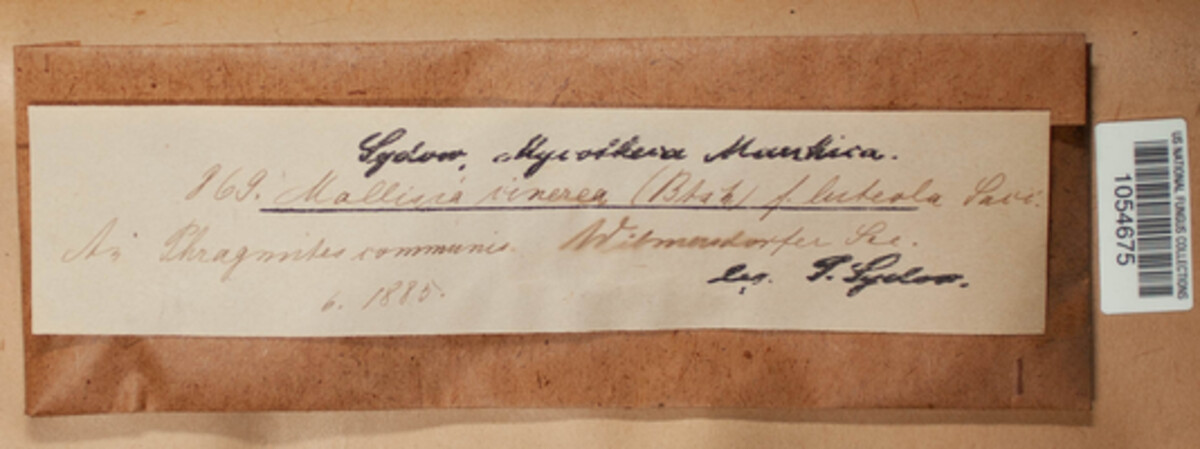 Sydow, Mycotheca Marchica.
869. Mollisia cinerea (Btsh) f. luteola Sacc.
An Phragmites communis. Wilmersdorfer See.
leg. P. Sydow.
6. 1885.
US NATIONAL FUNGUS COLLECTIONS
1054675